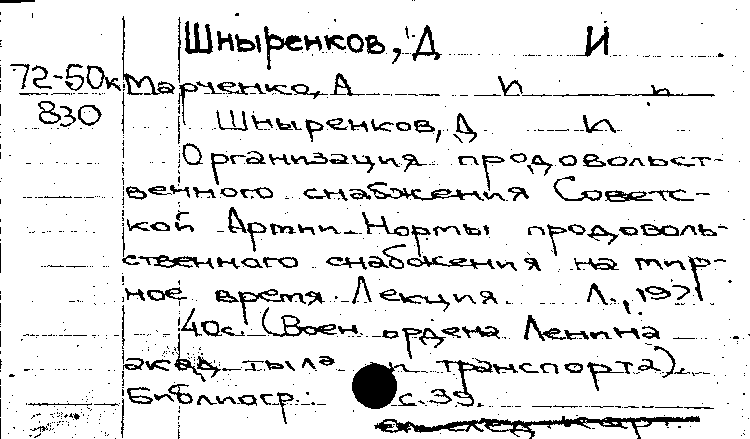 Шныренков, Д И
72-50к
830
Марченко, А И
Шныренков, Д И
Организация продовольст-
венного снабжения Советс-
кой Армии. Нормы продоволь-
ственного снабжения на мир-
ное время. Лекция. Л., 1971
40с. (Воен. ордена Ленина
акад. тыла и транспорта).
Библиогр.: с. 39.
См. след. карт.